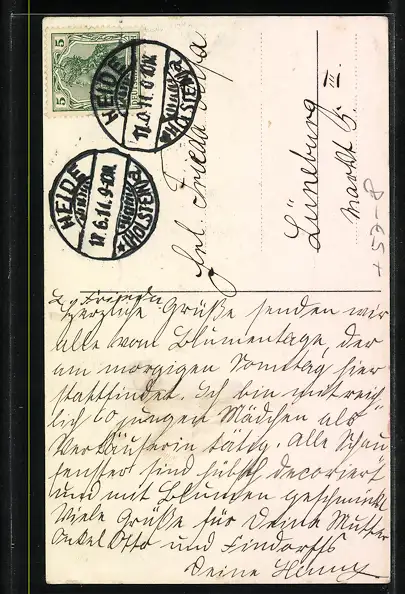 5
5
HEIDE
HOLSTEIN
HEIDE
17.6.11. 9-10N.
HOLSTEIN
Frl. Frieda
Lüneburg
Markt 5. III.
+53-8
L. Frieda
Herzliche Grüße senden wir
alle vom Blumentage, der
am morgigen Sonntag hier
stattfindet. Ich bin mit reich-
lich 60 jungen Mädchen als
Verkäuferin tätig. Alle Schau-
fenster sind hübsch decoriert
und mit Blumen geschmückt
Viele Grüße für Deine Mutter
Onkel Otto und Findorffs
Deine Henny